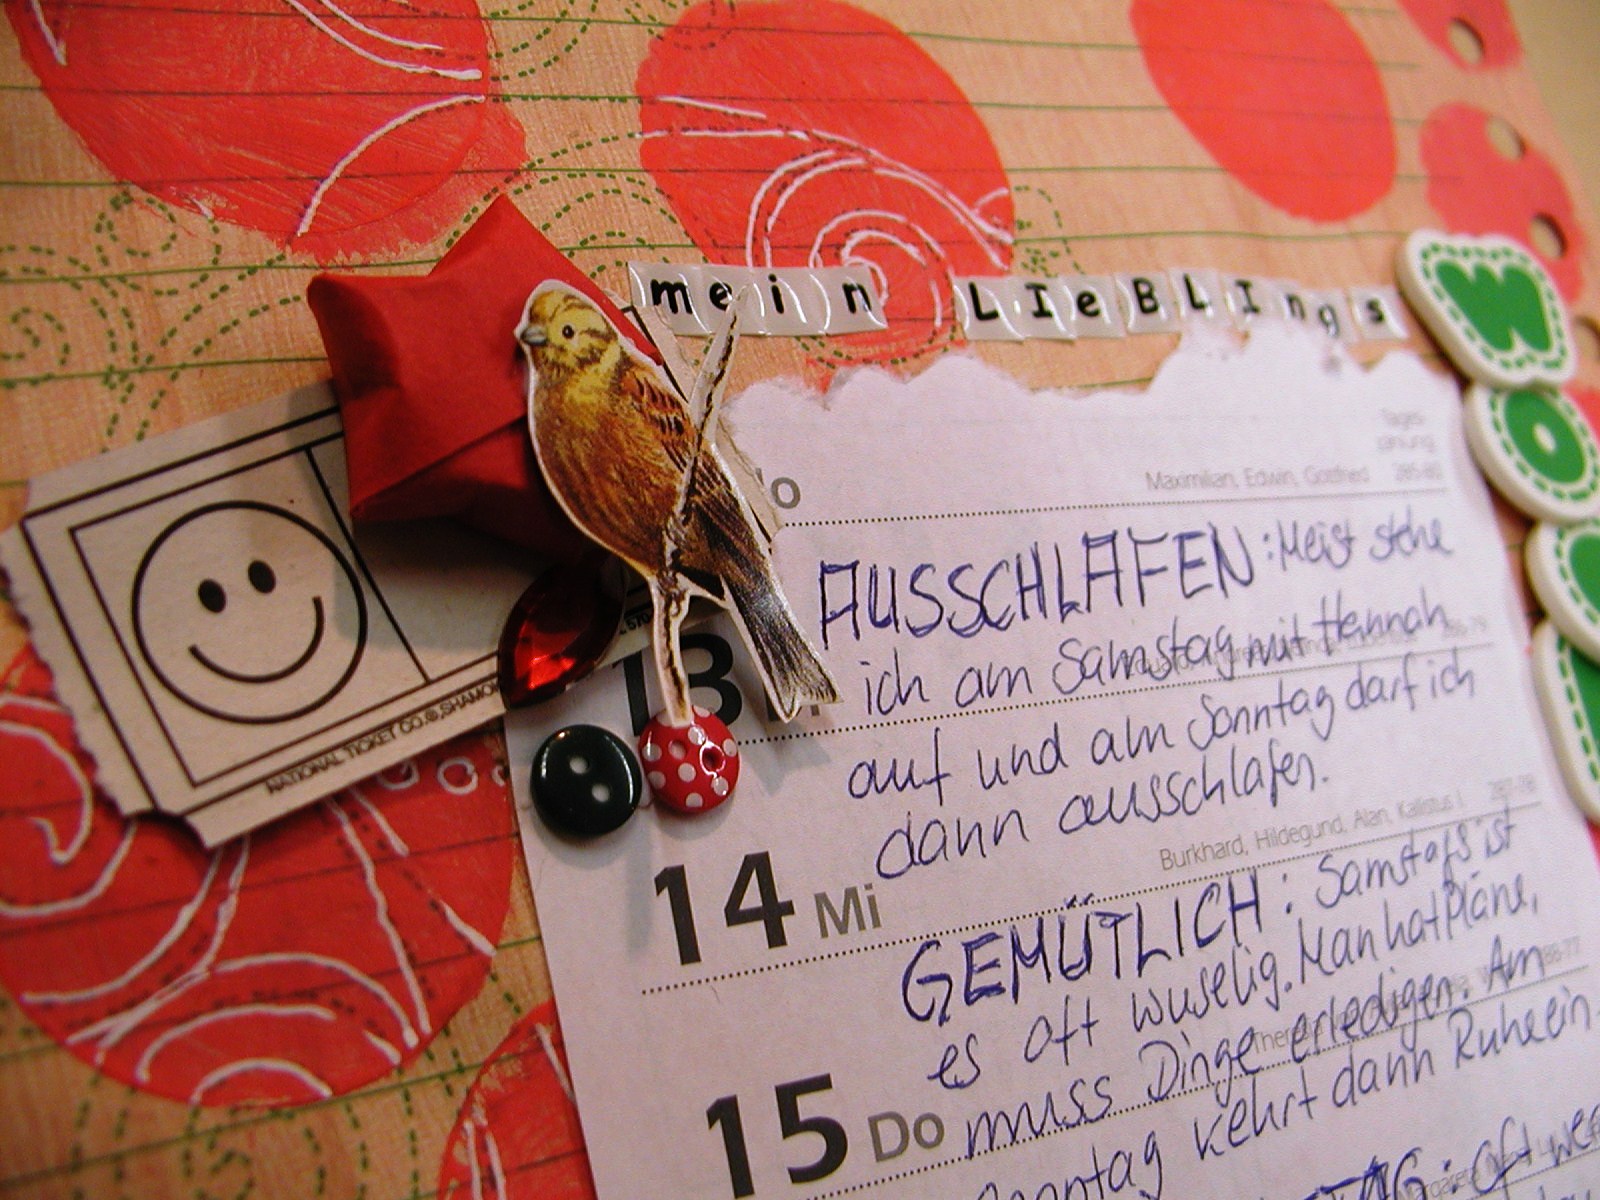 mein LIeBLIngs
WO
Tages-
zählung:
Mo
Maximilian, Edwin, Gottfried 285-80
AUSSCHLAFEN: Meist stehe
ich am Samstag mit Hennah
auf und am Sonntag darf ich
dann ausschlafen.
13
NATIONAL TICKET CO. ®, SHAMO
Burkhard, Hildegund, Alan, Kallistus I.
14 Mi
GEMÜTLICH: Samstags ist
es oft wuselig. Man hat Pläne,
muss Dinge erledigen. Am
Sonntag kehrt dann Ruhe ein.
15 Do
TAG: oft